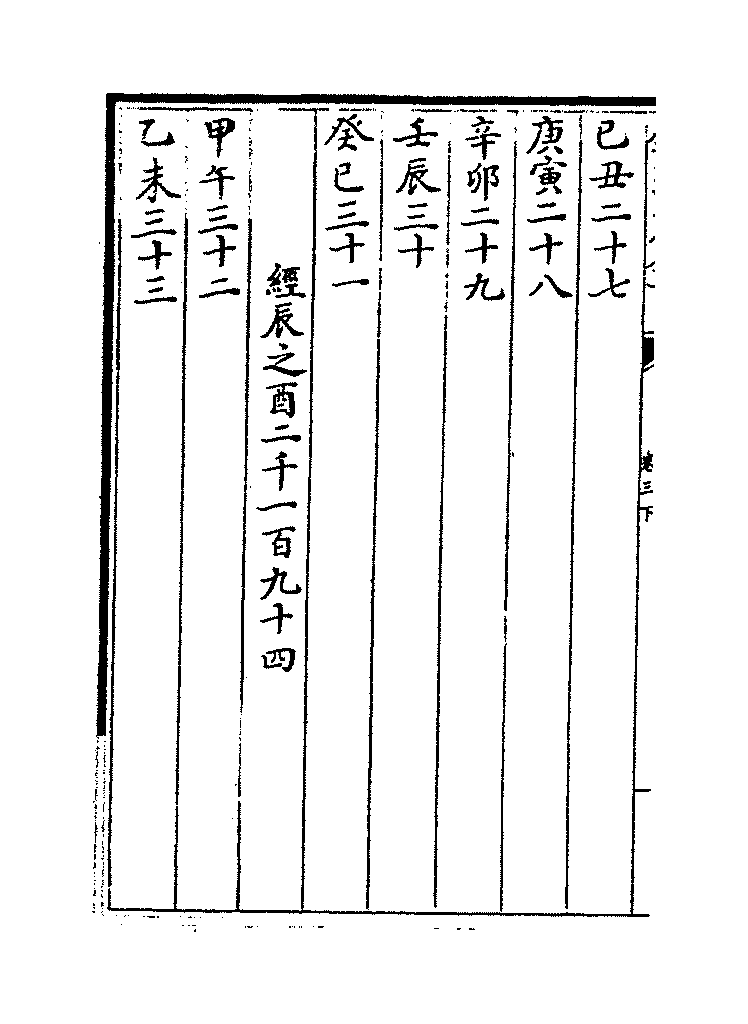 己丑二十七
庚寅二十八
辛卯二十九
壬辰三十
癸巳三十一
經辰之酉二千一百九十四
甲午三十二
乙未三十三
卷三下